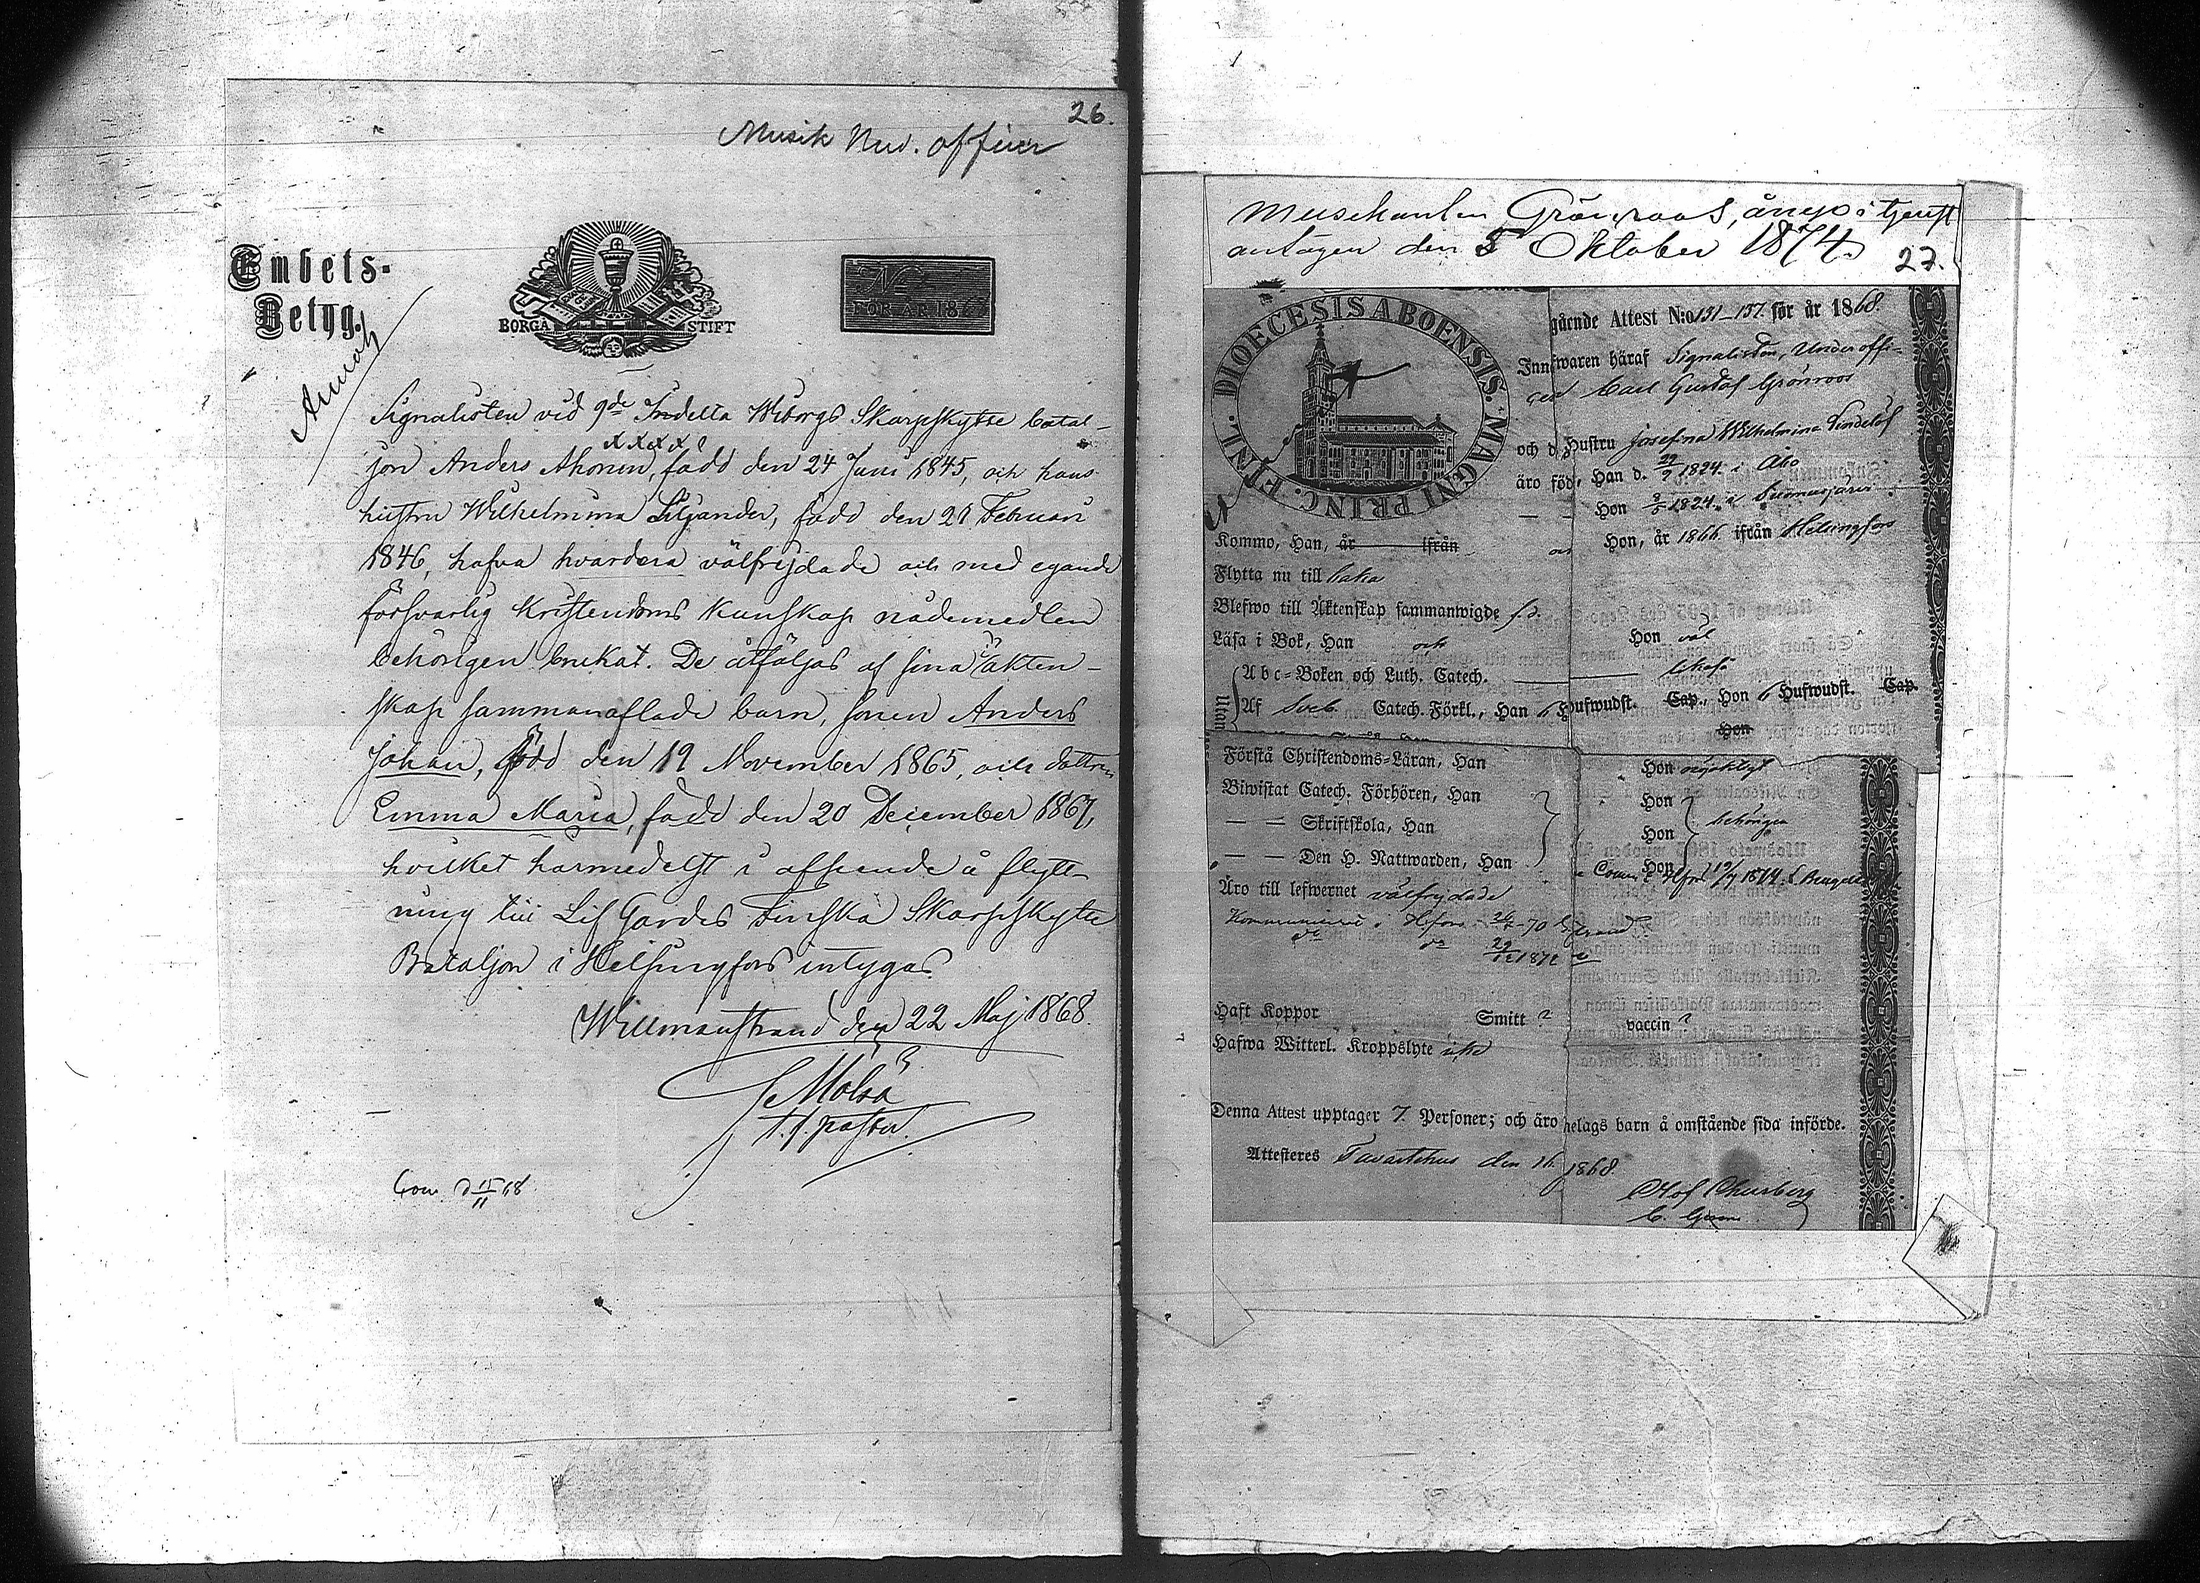 26.
Musik Und. officer
Embets-
Betyg.
BORGÅ STIFT
FÖR ÅR 1867
Signalisten vid 9de Indelta Wiborgs Skarpskytte batal-
jon Anders Ahonen, född den 24 Juni 1845, och hans
hustru Wilhelmina Liljander, född den 21 Februari
1846, hafva hvardera välfrejdade och med egande
försvarlig Kristendoms Kunskap nådemedlen
behörigen brukat. De åtföljas af sina i äkten-
skap sammanaflade barn, sonen Anders
Johan, född den 19 November 1865, och dottren
Emma Maria, född den 20 December 1867,
hvilket härmedelst i afseende å flytt-
ning till Lif Gardes Finska Skarpskytte
Bataljon i Helsingfors intygas.
Willmanstrand den 22 Maj 1868.
Molsa
t. f. pastor.
Com. d 15/11 68
Musikanten Grönroos, ånyo i tjenst
antagen den 5 Oktober 1874.
27.
DIOECESIS ABOENSIS. MAGNI PRINC. FINL.
gående Attest N:o 151-157 för år 1868.
Innehwaren häraf Signalisten, Underoffi-
ceren Carl Gustaf Grönroos
och d. Hustru Josefina Wilhelmina Lindelöf
äro född, Han d. 29/9 1824 i Åbo
Hon 8/5 1824 i Suomusjärvi
Kommo, Han, år ifrån Hon, år 1866 ifrån Helsingfors
Flytta nu till baka
Blefwo till Äktenskap sammanwigde f. d.
Läsa i Bok, Han och Hon väl
Utan
Abc-Boken och Luth. Catech. likaså
Af Sveb. Catech. Förkl., Han 6 Hufwudst. Cap., Hon 6 Hufwudst. Cap.
Hon
Förstå Christendoms-Läran, Han Hon nöjaktigt
Biwistat Catech. Förhören, Han Hon
— — Skriftskola, Han Hon behörigen
— — Den H. Nattwarden, Han Hon
Äro till lefwernet välfrejdade
Haft Koppor Smitt ? vaccin ?
Hafwa Witterl. Kroppslyte icke
Denna Attest upptager 7 Personer; och äro helags barn å omstående sida införde.
Attesteres Tavastehus den 1868